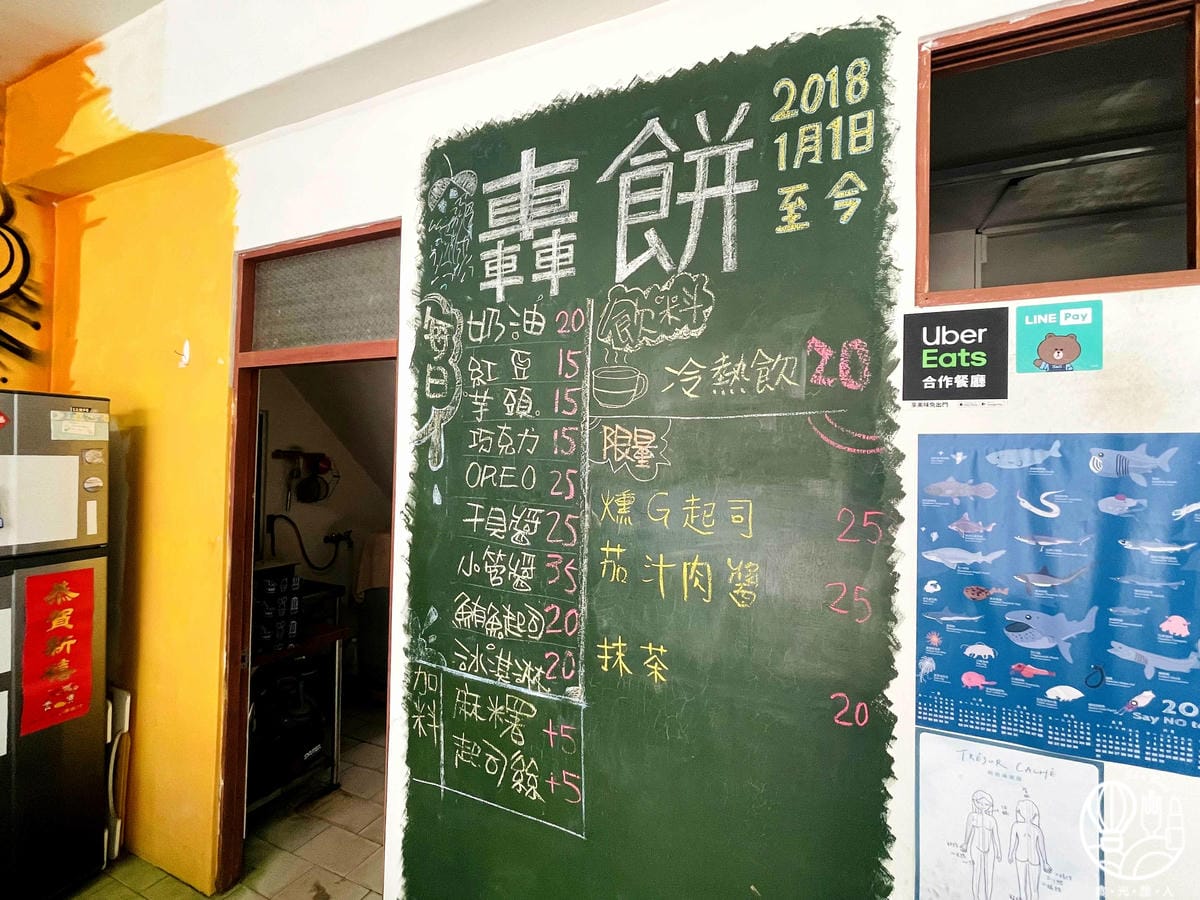 轟餅
2018
1月1日
至今
每日
奶油 20
紅豆 15
芋頭 15
巧克力 15
OREO 25
干貝醬 25
小管醬 35
鮪魚起司 20
冰淇淋 20
加料
麻糬 +5
起司絲 +5
飲料
冷熱飲 20
限量
燻G起司 25
茄汁肉醬 25
抹茶 20
Uber
Eats
合作餐廳
LINE Pay
恭賀新禧
20
Say NO t
TRÉSOR CACHÉ